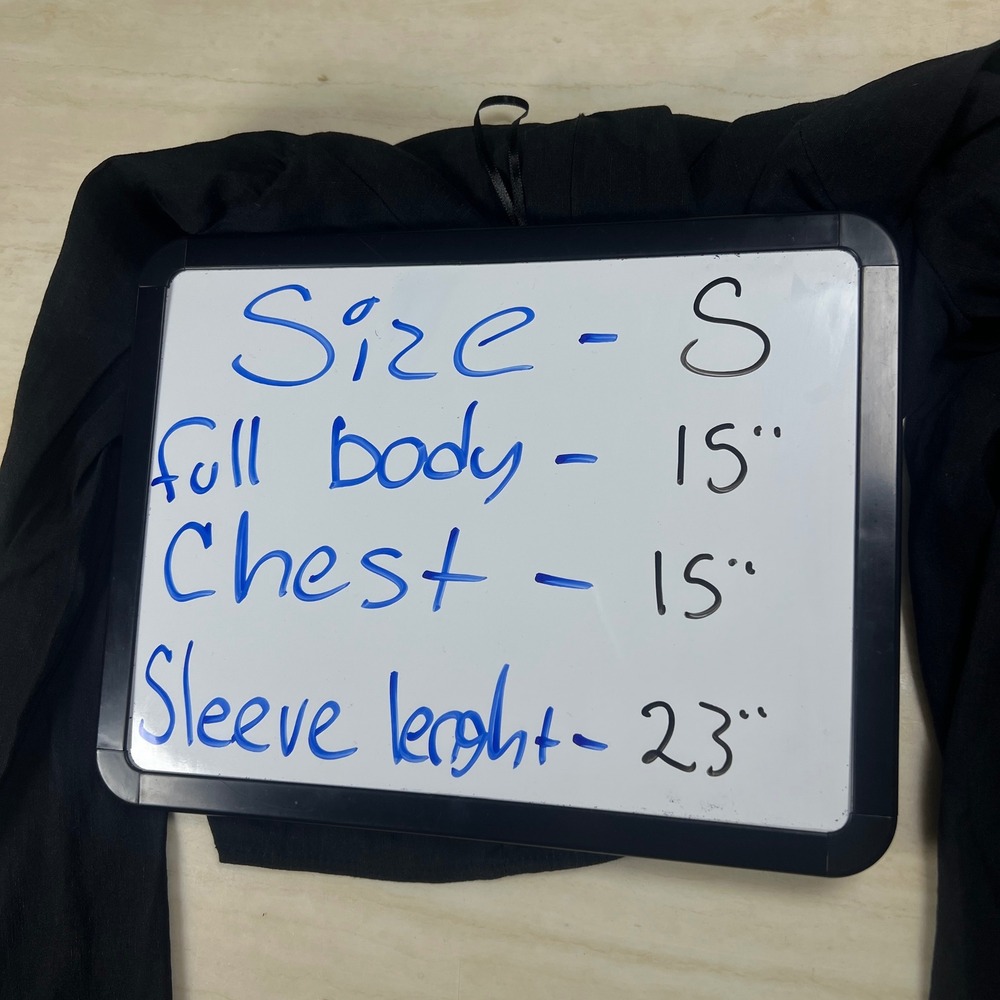 Size - S
full body - 15"
Chest - 15"
Sleeve lenght - 23"